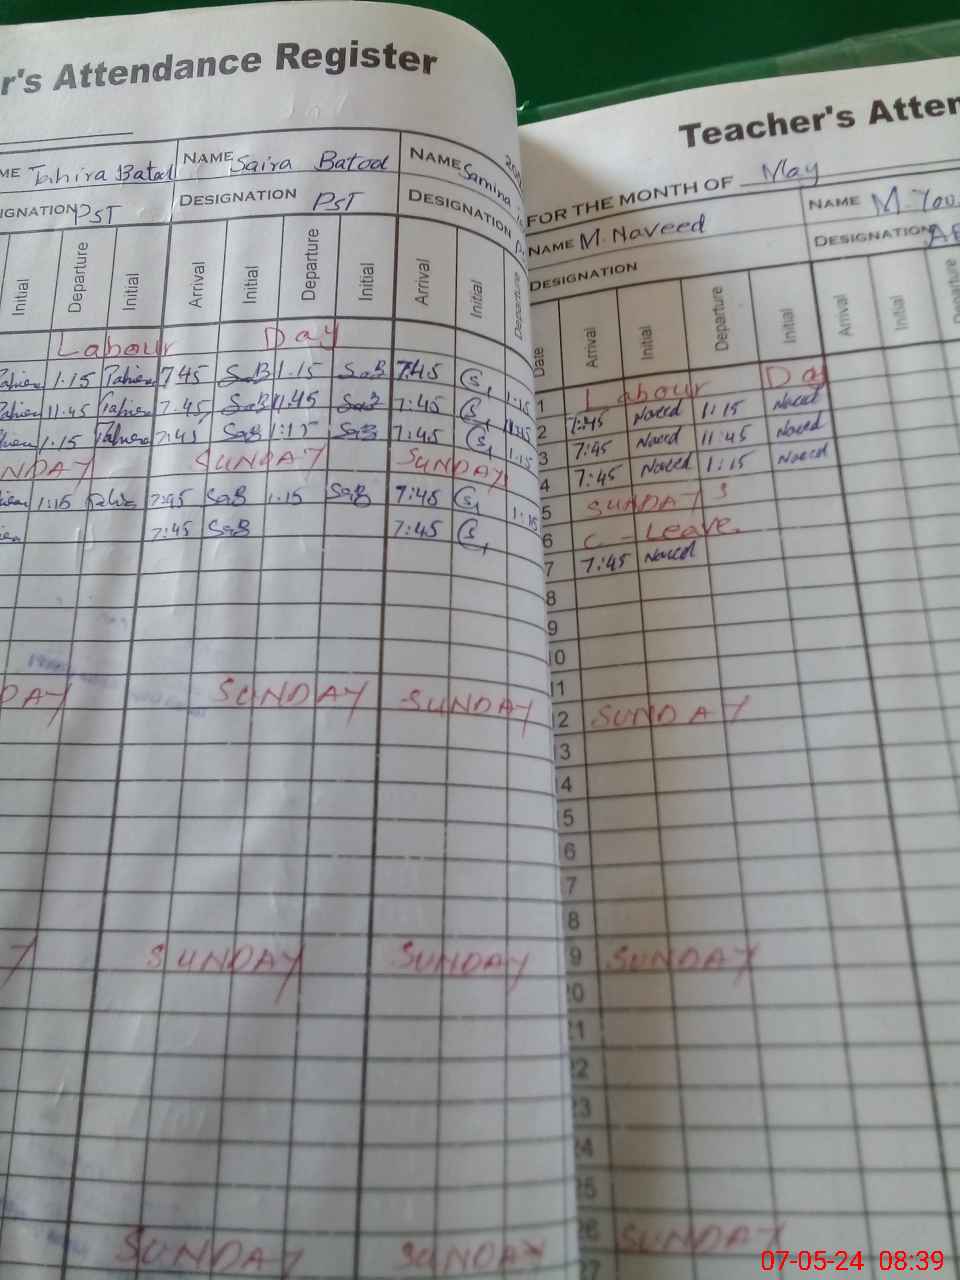 r's Attendance Register
ME Tahira Batool NAME Saira Batool NAME Samina
IGNATION PST DESIGNATION PST DESIGNATION
Initial Departure Initial Arrival Initial Departure Initial Arrival Initial Departure
Labour Day
1.15 7 45 SaB 1.15 SaB 7:45 1:15
11.45 7.45 SaB 11.45 SaB 7:45 11:45
1.15 7:45 SaB 1:15 SaB 7:45 1.15
NDAY SUNDAY SUNDAY
1:15 7:45 SaB 1.15 SaB 7:45 1:15
7:45 SaB 7:45
DAY SUNDAY SUNDAY
Y SUNDAY SUNDAY
SUNDAY SUNDAY
Teacher's Atten
FOR THE MONTH OF May
NAME M. Naveed NAME
DESIGNATION DESIGNATION
Date Arrival Initial Departure Initial Arrival Initial
1 Labour Da
2 7:45 Naveed 1:15 Naveed
3 7:45 Naveed 11:45 Naveed
4 7:45 Naveed 1:15 Naveed
5 SUNDAY'S
6 C - Leave
7 7:45 Naveed
8
9
10
11
12 SUNDAY
3
4
5
6
7
8
9 SUNDAY
20
21
22
23
24
25
26 SUNDAY
27
07-05-24 08:39